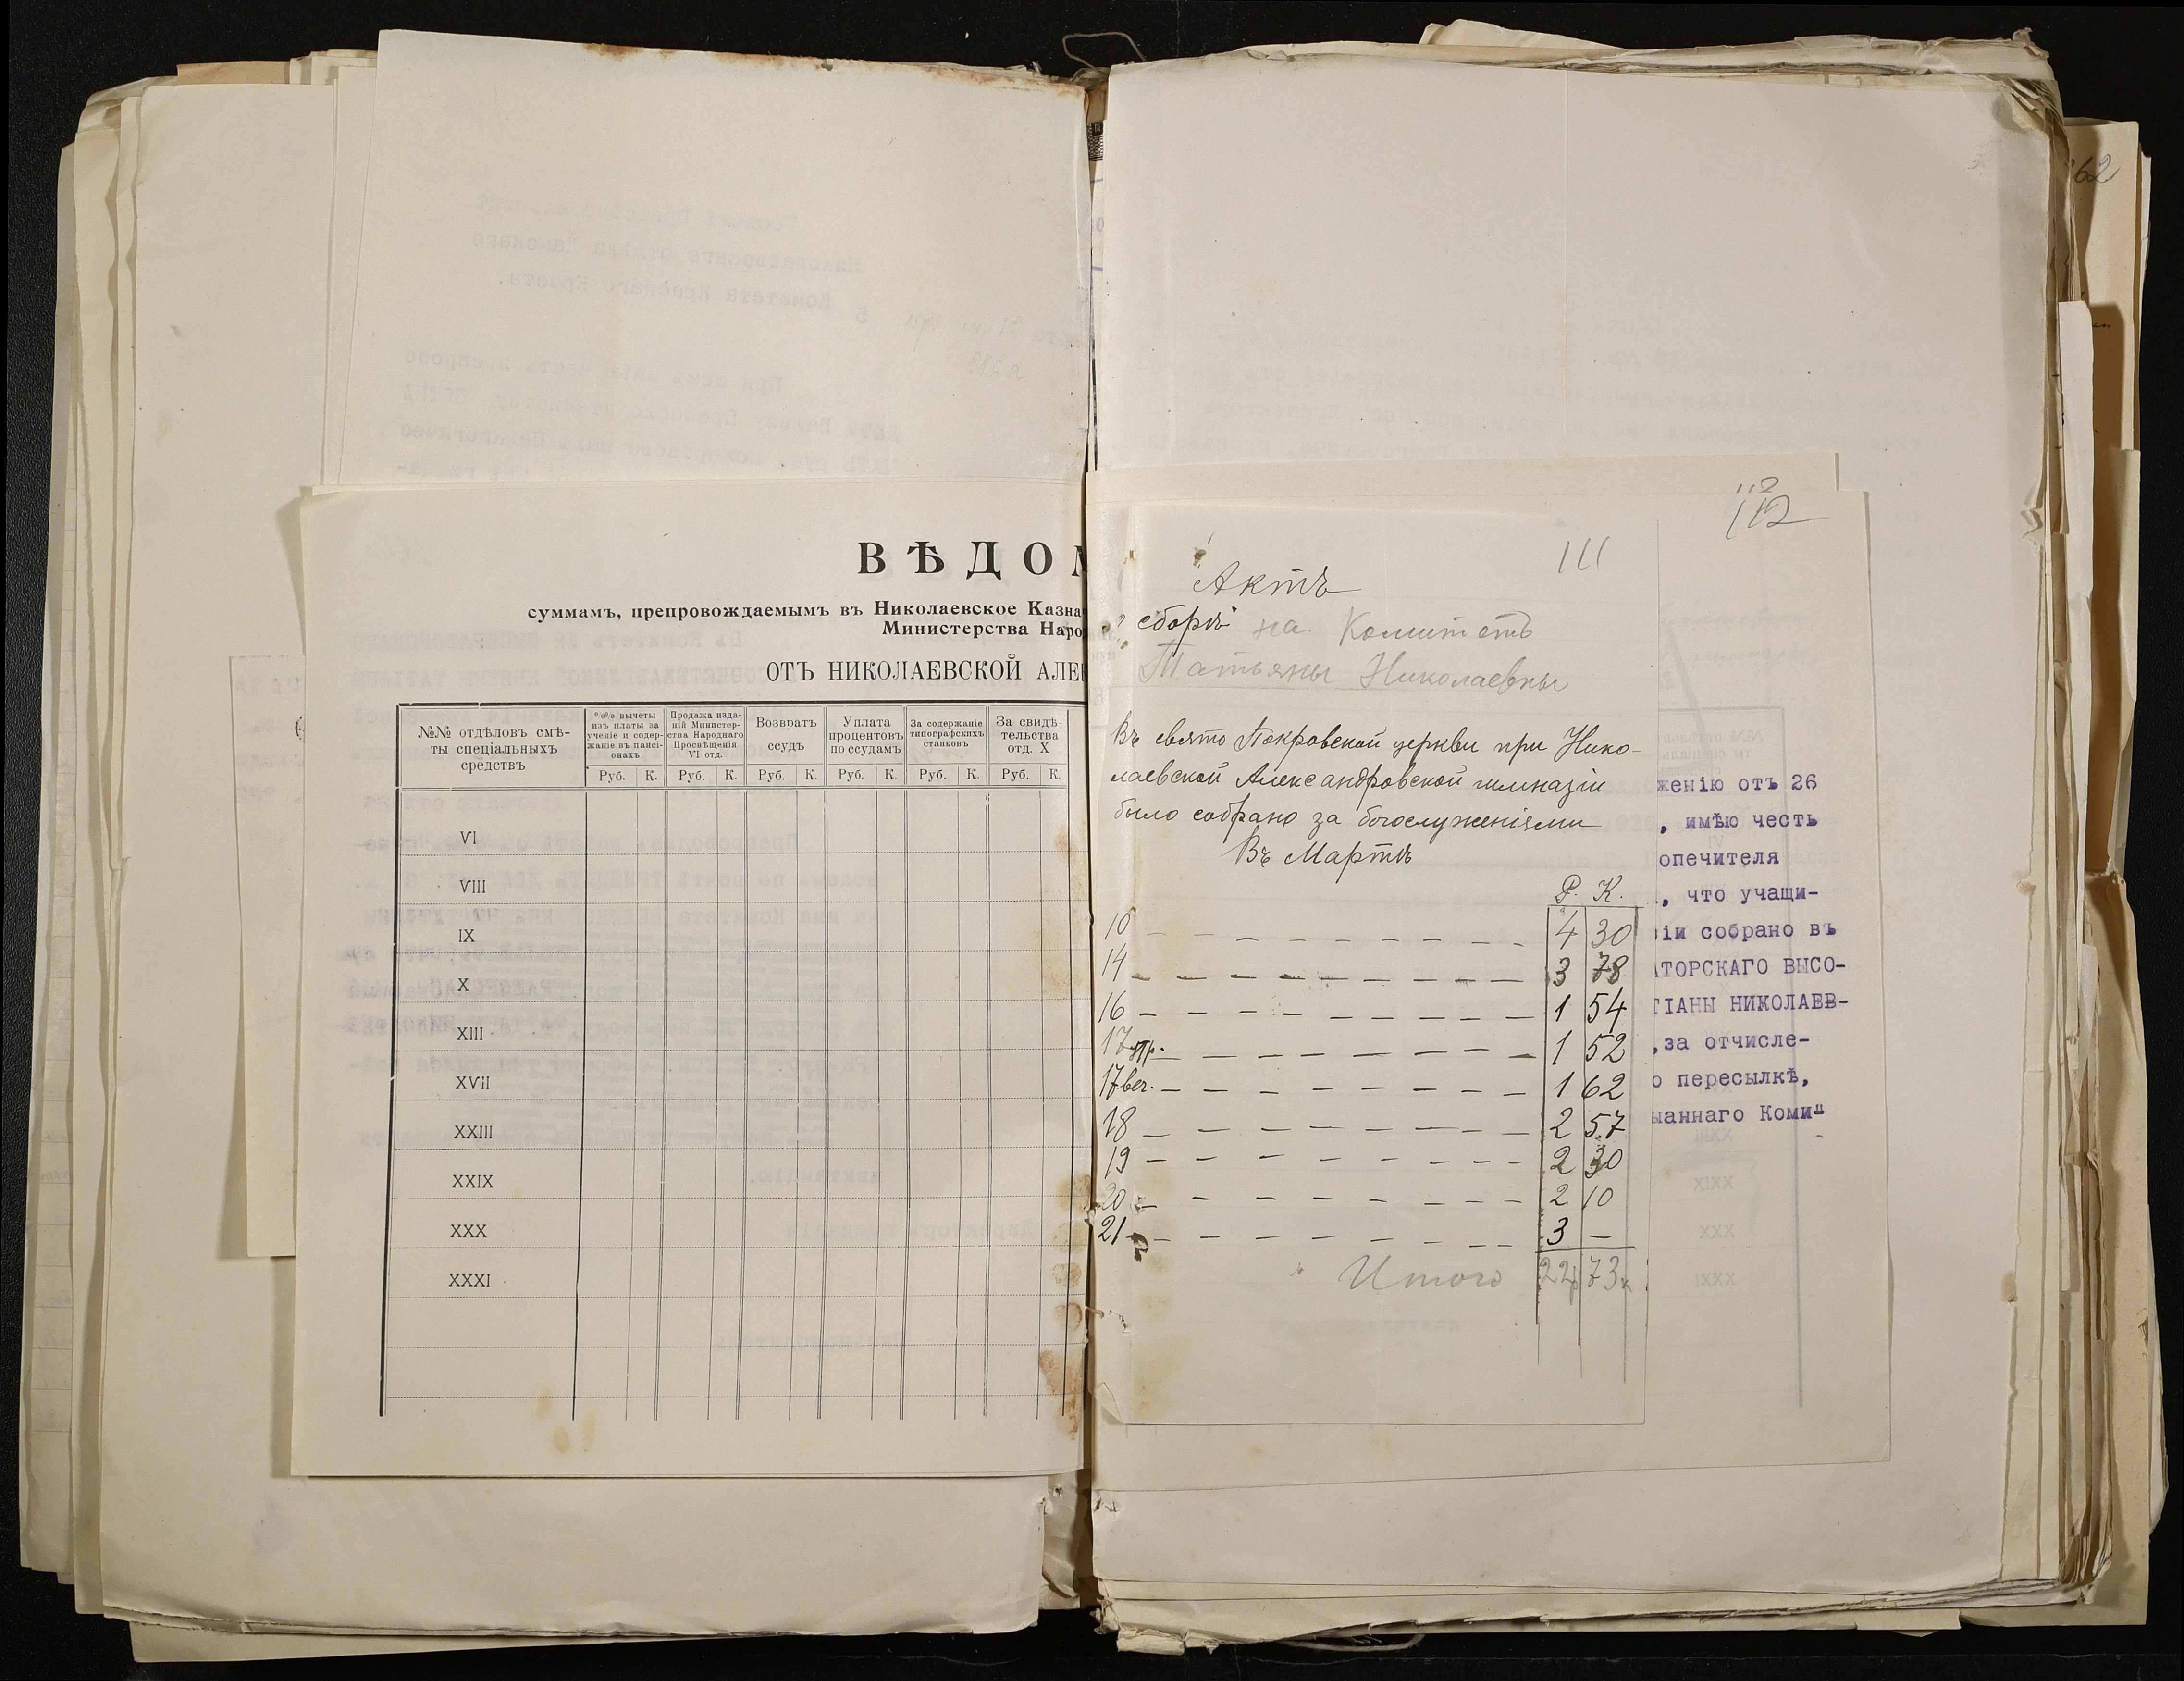 ВѢДОМ
суммамъ, препровождаемымъ въ Николаевское Казна
Министерства Наро
ОТЪ НИКОЛАЕВСКОЙ АЛЕ
№№ отдѣловъ смѣ-
ты спеціальныхъ
средствъ
%% вычеты
изъ платы за
ученіе и содер-
жаніе въ пансі-
онахъ
Продажа изда-
ній Министер-
ства Народнаго
Просвѣщенія
VI отд.
Возвратъ
ссудъ
Уплата
процентовъ
по ссудамъ
За содержаніе
типографскихъ
станковъ
За свидѣ-
тельства
отд. X
Руб. К. Руб. К. Руб. К. Руб. К. Руб. К. Руб. К.
VI
VIII
IX
X
XIII
XVII
XXIII
XXIX
XXX
XXXI
62
112
112
111
Актъ
сборѣ на Комитетъ
Татьяны Николаевны
Въ свято Покровской церкви при Нико-
лаевской Александровской гимназіи
было собрано за богослуженіями
Въ Мартѣ
Р. К.
10 — — — — — — — — 4 30
14 — — — — — — — — — 3 78
16 — — — — — — — — — 1 54
17 утр. — — — — — — — — 1 52
17 веч. — — — — — — — — 1 62
18 — — — — — — — — — 2 57
19 — — — — — — — — — 2 30
20 — — — — — — — — — 2 10
21 — — — — — — — — — 3 —
Итого 22р 73к
женію отъ 26
, имѣю честь
опечителя
, что учащи-
іи собрано въ
АТОРСКАГО ВЫСО-
ТІАНЫ НИКОЛАЕВ-
,за отчисле-
о пересылкѣ,
маннаго Коми-